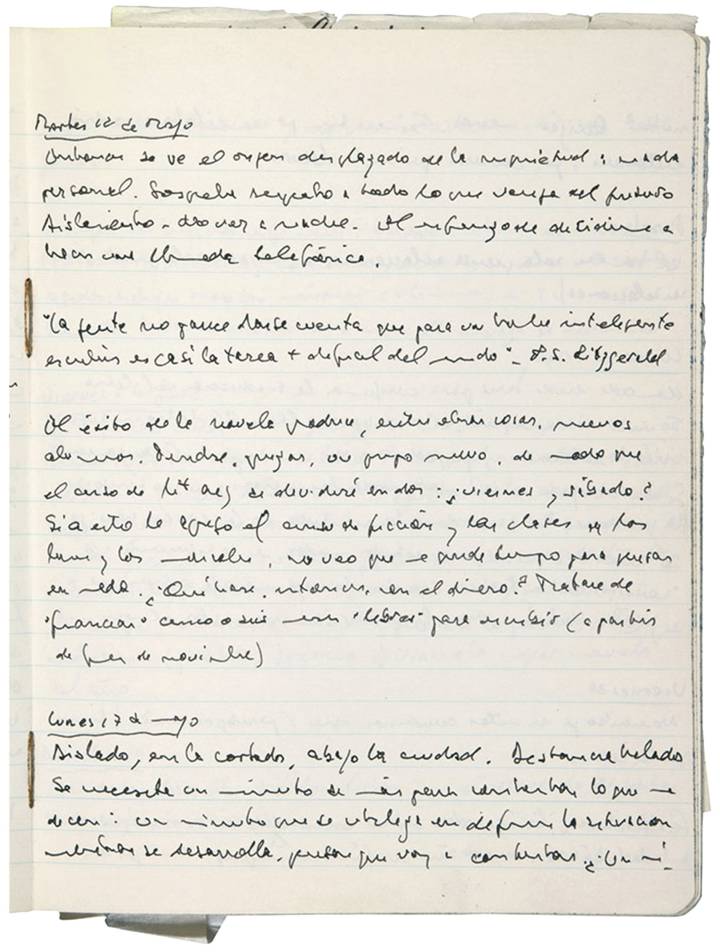 Martes 12 de Mayo
se ve el origen desplazado de la inquietud: nada
personal. Sospecha respecto a todo lo que venga del futuro
Aislamiento - no ver a nadie. de decidirme a
hacer una llamada telefónica.
"La gente no parece darse cuenta que para un hombre inteligente
escribir es casi la tarea + difícil del mundo" - F. S. Fitzgerald
El éxito de la novela produce, entre otras cosas, nuevos
alumnos. Tendré, quizás, un grupo nuevo, de modo que
el curso de Lit Arg se dividirá en dos: ¿viernes y sábado?
Si a esto le agrego el curso de ficción y las clases de los
lunes y los miércoles, no veo que me quede tiempo para pensar
en nada. ¿Qué haré, entonces, con el dinero? Trataré de
"financiar" cinco o seis meses "libres" para escribir (a partir
de fines de noviembre)
Lunes 17 de mayo
Aislado, en la cortada, abajo la ciudad. Distancia helada
Se necesita un minuto de más para contestar lo que me
dicen: un minuto que se utiliza en definir la situación
mientras se desarrolla, pensar que voy a contestar. ¿Un mi-